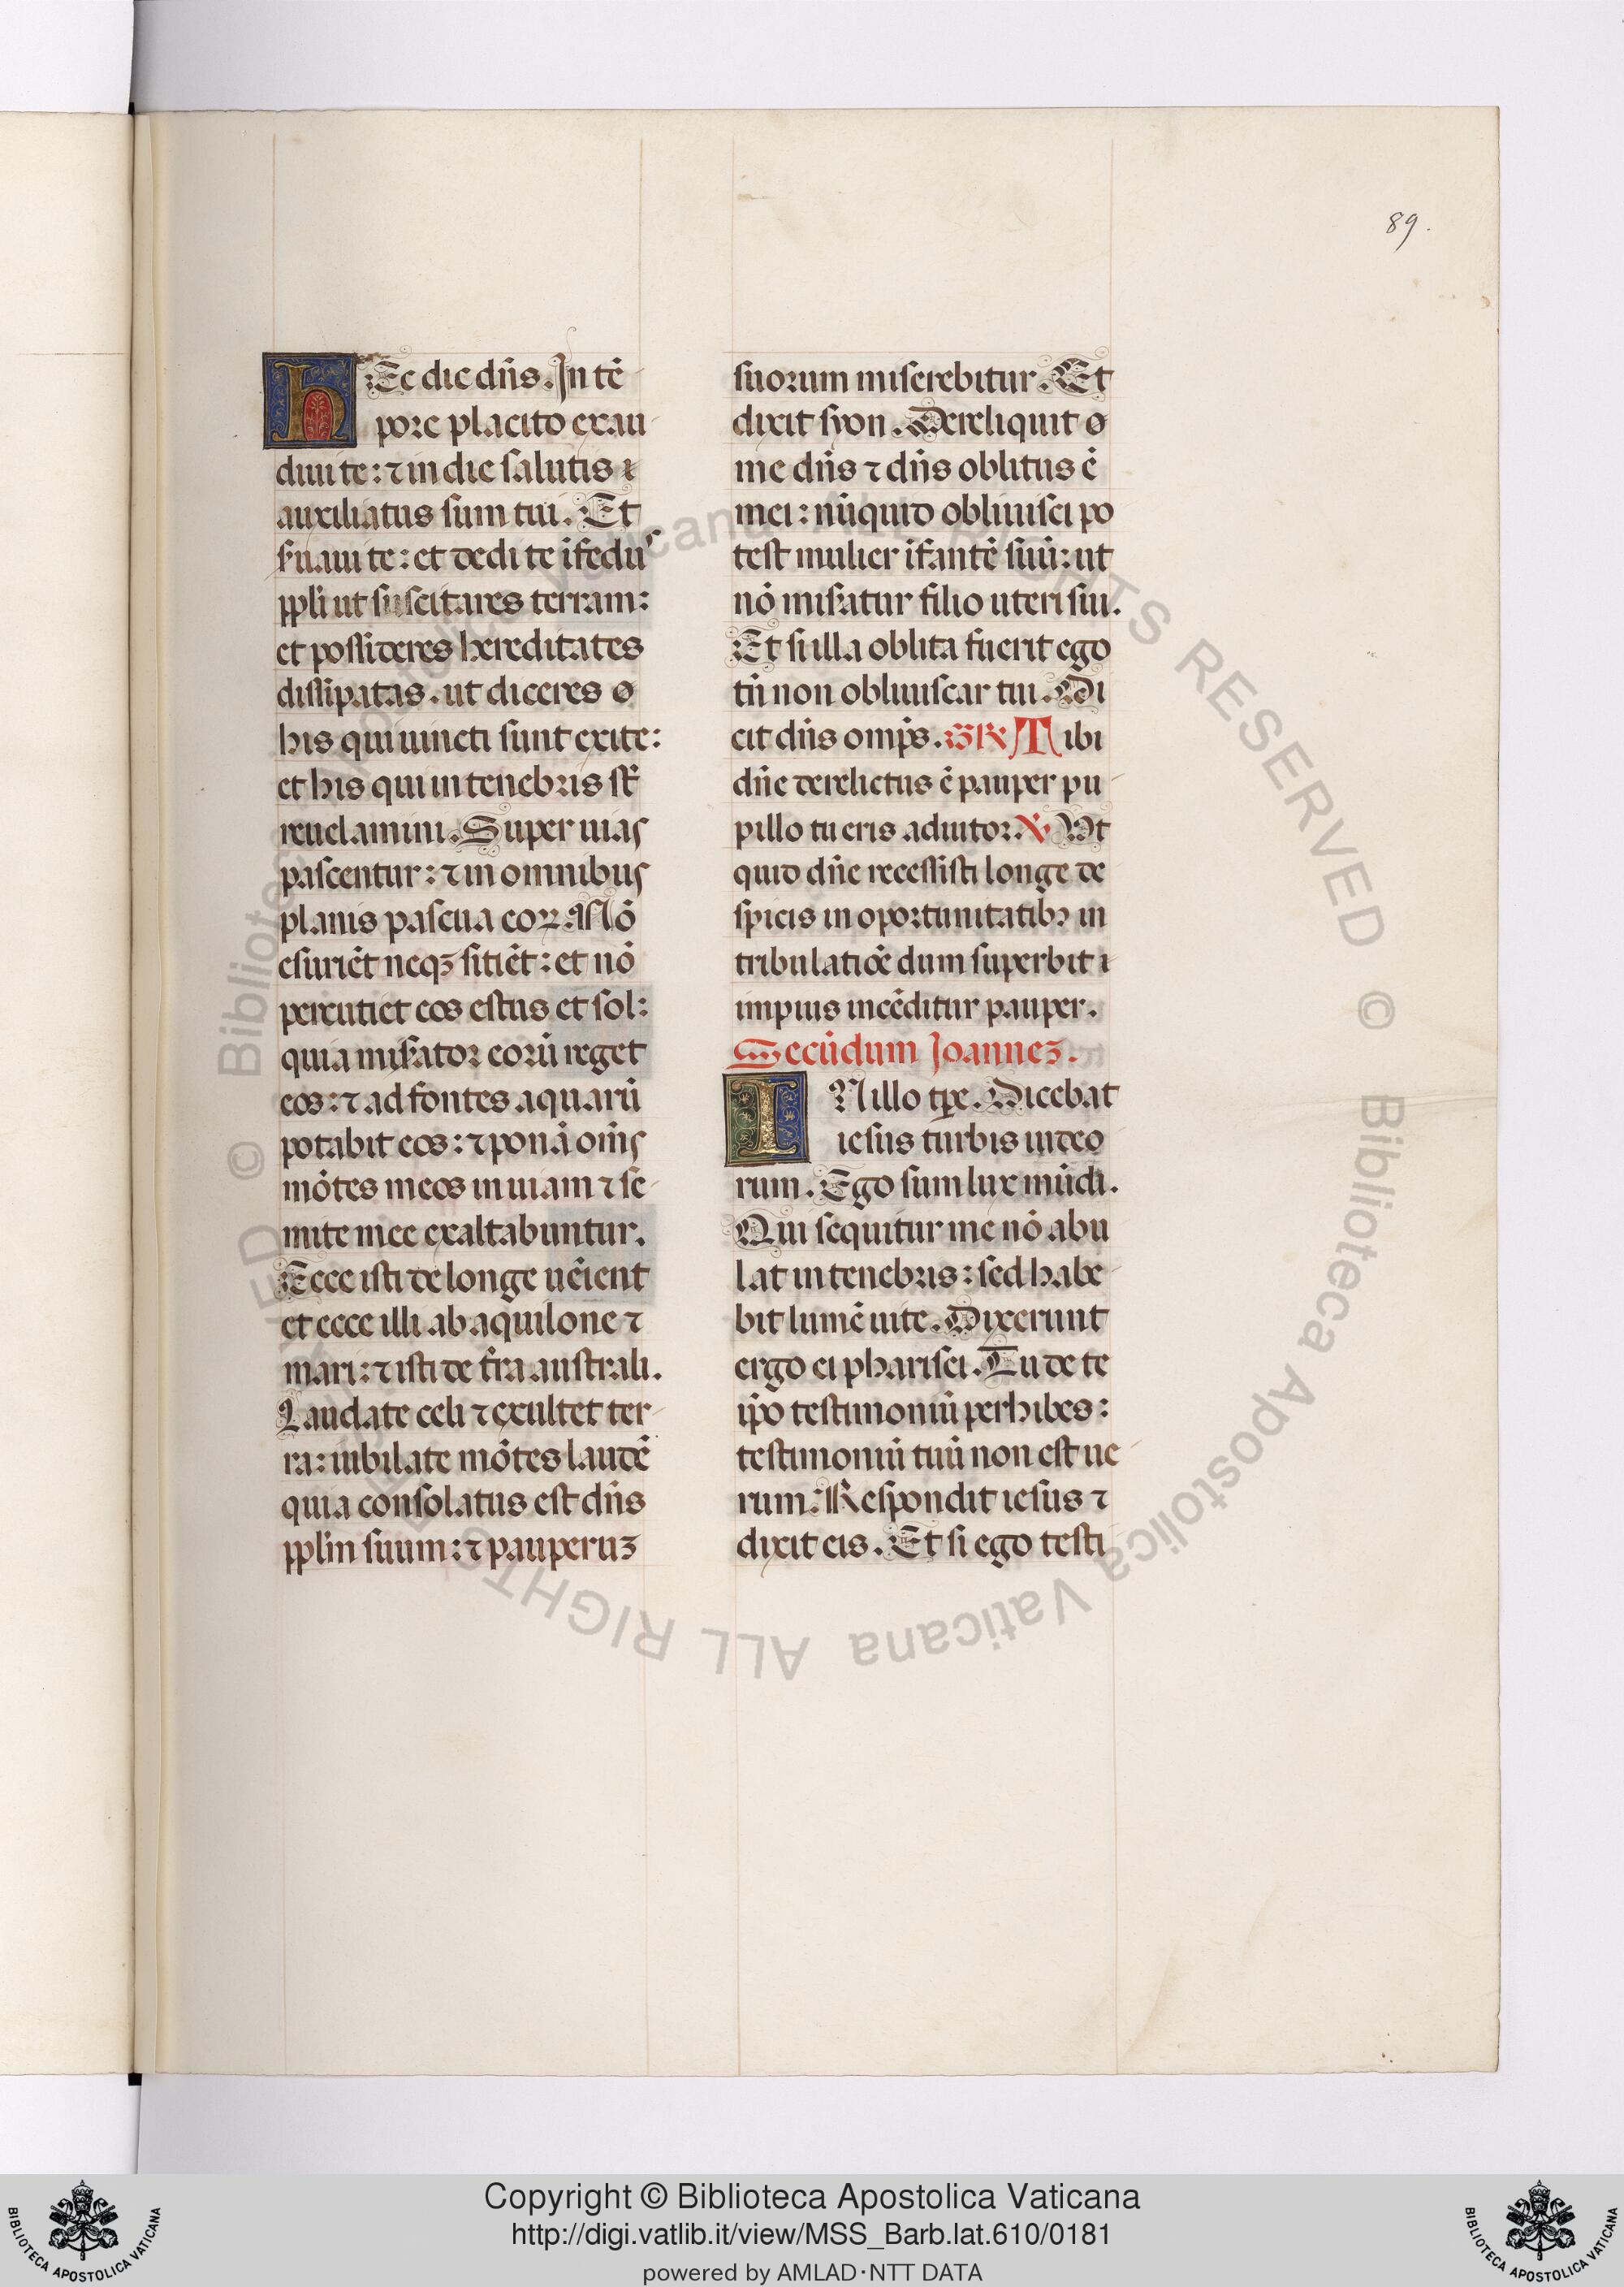 89.
HEc dic dñs. In tẽ
pore placito exau
diui te: ⁊ in die salutis
auxiliatus sum tui. Et
s̃uaui te: et dedi te ĩ fedus
ppli ut suscitares terram:
et possideres hereditates
dissipatas. ut diceres
his qui uincti sunt exite:
et his qui in tenebris st̃
reuelamini. Super uias
pascentur: ⁊ in omnibus
planis pascua eoꝝ. Nõ
esuriẽt neqꝫ sitiẽt: et nõ
percutiet eos estus et sol:
quia mis̃ator eorũ reget
eos: ⁊ ad fontes aquarũ
potabit eos: ⁊ ponã om̃s
mõtes meos in uiam ⁊ se
mite mee exaltabuntur.
Ecce isti de longe uẽient
et ecce illi ab aquilone ⁊
mari: ⁊ isti de t̃ra australi.
Laudate celi ⁊ exultet ter
ra: iubilate mõtes laudẽ
quia consolatus est dñs
pplm̃ suum: ⁊ pauperuꝫ
suorum miserebitur. Et
dixit syon. Dereliquit
me dñs ⁊ dñs oblitus ẽ
mei: nũquid obliuisci po
test mulier ĩfantẽ suũ: ut
nõ mis̃atur filio uteri sui.
Et si illa oblita fuerit ego
tñ non obliuiscar tui. Di
cit dñs omp̃s. GR Tibi
dñe derelictus ẽ pauper pu
pillo tu eris adiutor. ℣ Ut
quid dñe recessisti longe de
spicis in oportunitatibꝫ in
tribulatiõe dum superbit
impius incẽditur pauper.
Secũdum Joannez.
IN illo tp̃e. Dicebat
iesus turbis iudeo
rum. Ego sum lux mũdi.
Qui sequitur me nõ abu
lat in tenebris: sed habe
bit lumẽ uite. Dixerunt
ergo ei pharisei. Tu de te
ip̃o testimoniũ perhibes:
testimoniũ tuũ non est ue
rum. Respondit iesus ⁊
dixit eis. Et si ego testi
© Biblioteca Apostolica Vaticana ALL RIGHTS RESERVED
© Biblioteca Apostolica Vaticana ALL RIGHTS RESERVED
Copyright © Biblioteca Apostolica Vaticana
http://digi.vatlib.it/view/MSS_Barb.lat.610/0181
powered by AMLAD·NTT DATA
BIBLIOTECA APOSTOLICA VATICANA
BIBLIOTECA APOSTOLICA VATICANA